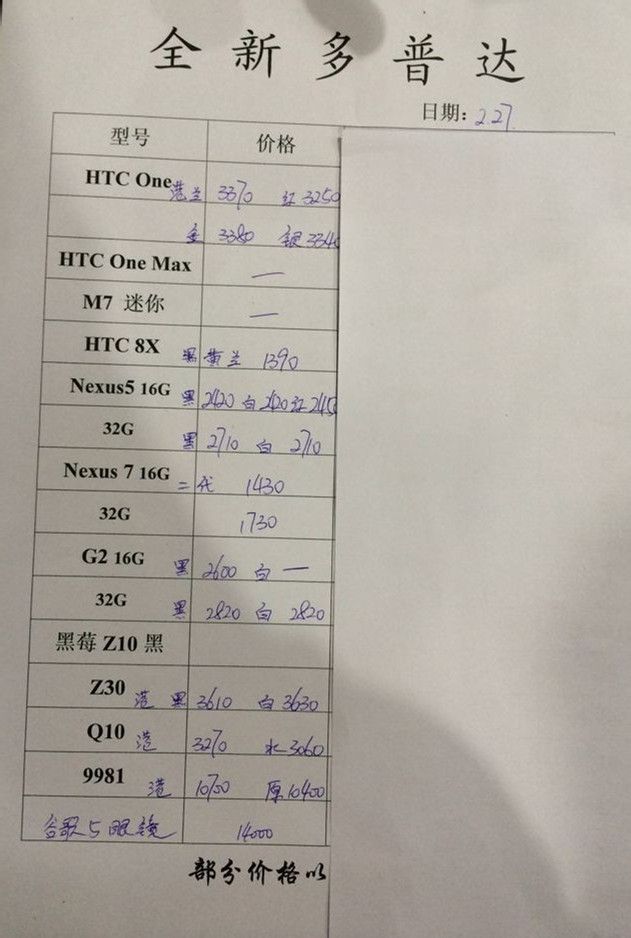 全新多普达
日期: 2.27
型号 价格
HTC One 港兰 3370 红 3250
金 3380 银 334
HTC One Max —
M7 迷你 —
HTC 8X 黑黄兰 1390
Nexus5 16G 黑 2420 白 2420 红 245
32G 黑 2710 白 2710
Nexus 7 16G 二代 1430
32G 1730
G2 16G 黑 2600 白 —
32G 黑 2820 白 2820
黑莓 Z10 黑
Z30 港 黑 3610 白 3630
Q10 港 3270 水 3060
9981 港 10700 原 10400
谷歌 5 眼镜 14000
部分价格以